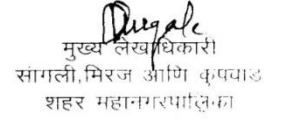 मुख्य लेखाधिकारी
सांगली,मिरज आणि कुपवाड
शहर महानगरपालिका